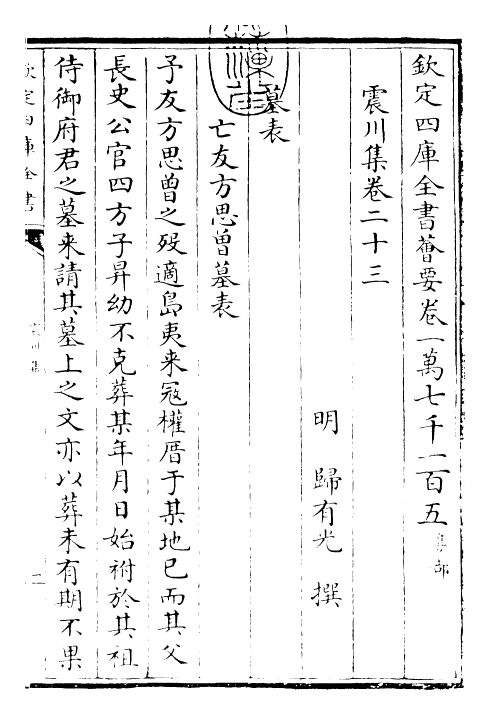 欽定四庫全書薈要卷一萬七千一百五集部
震川集卷二十三
明歸有光撰
墓表
亡友方思曾墓表
予友方思曾之殁適島夷来寇權厝于某地已而其父
長史公官四方子昇幼不克葬某年月日始祔於其祖
侍御府君之墓来請其墓上之文亦以葬未有期不果
欽定四庫全書